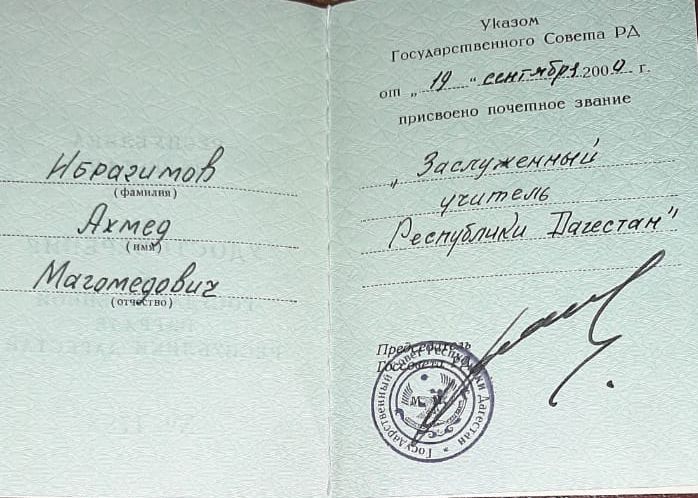 Ибрагимов
(фамилия)
Ахмед
(имя)
Магомедович
(отчество)
Указом
Государственного Совета РД
от „ 19 “ сентября 200 г.
присвоено почетное звание
„Заслуженный
учитель
Республики Дагестан"
Председатель
Госсовета РД
Государственный Совет Республики Дагестан